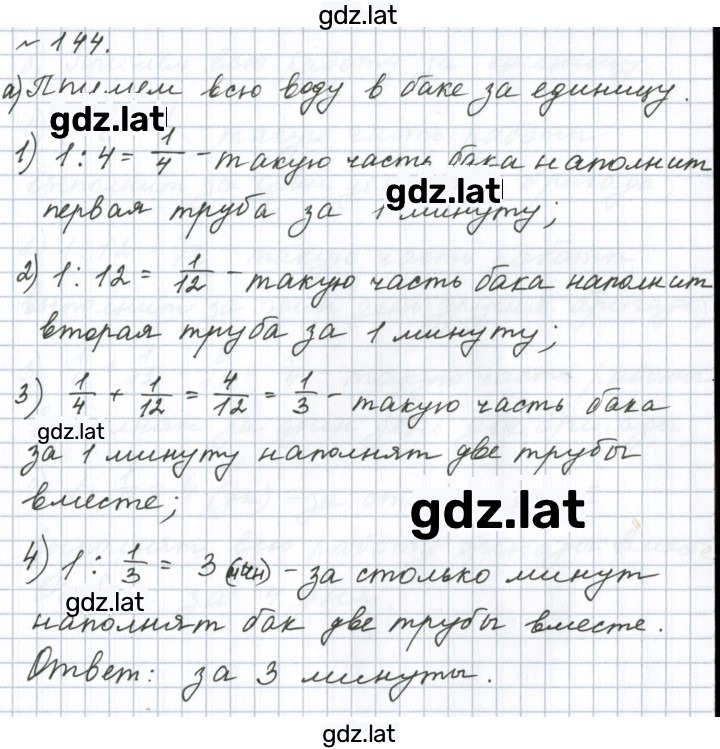 gdz.lat
№ 144.
а) Примем всю воду в баке за единицу.
gdz.lat
1) 1 : 4 = 1/4 - такую часть бака наполнит
gdz.lat
первая труба за 1 минуту;
2) 1 : 12 = 1/12 - такую часть бака наполнит
вторая труба за 1 минуту;
3) 1/4 + 1/12 = 4/12 = 1/3 - такую часть бака
gdz.lat
за 1 минуту наполнят две трубы
вместе;
gdz.lat
4) 1 : 1/3 = 3 (мин) - за столько минут
gdz.lat
наполнят бак две трубы вместе.
Ответ: за 3 минуты.
gdz.lat